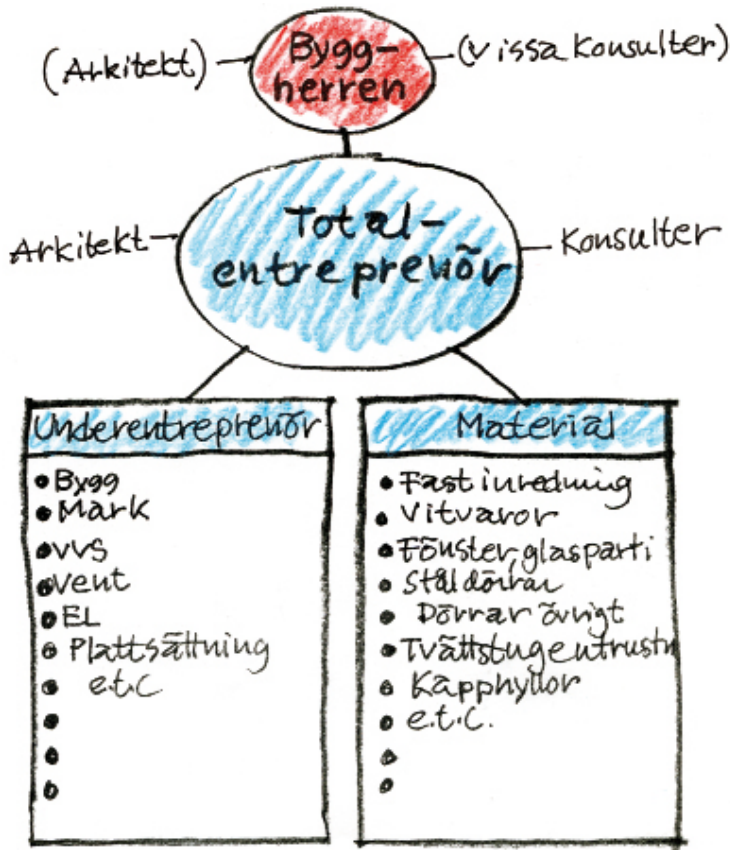 Bygg-
herren
(Arkitekt)
(Vissa Konsulter)
Total-
entreprenör
Arkitekt
Konsulter
Underentreprenör
• Bygg
• Mark
• VVS
• Vent
• EL
• Plattsättning
• e.t.c
Material
• Fast inredning
• Vitvaror
• Fönster, glasparti
• Ståldörrar
• Dörrar övrigt
• Tvättstugeutrustn
• Kapphyllor
• e.t.c.